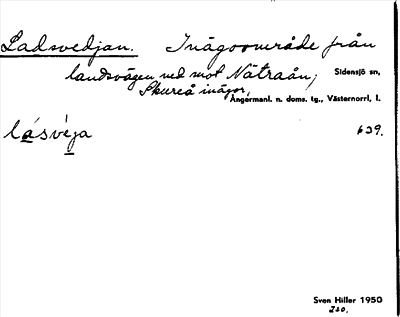 Ladsvedjan. Inägoområde från
landsvägen ned mot Nätraån, Sidensjö sn,
Skureå inägor, Ångermanl. n. doms. tg., Västernorrl, l.
lásvéja 639.
Sven Hiller 1950
230.